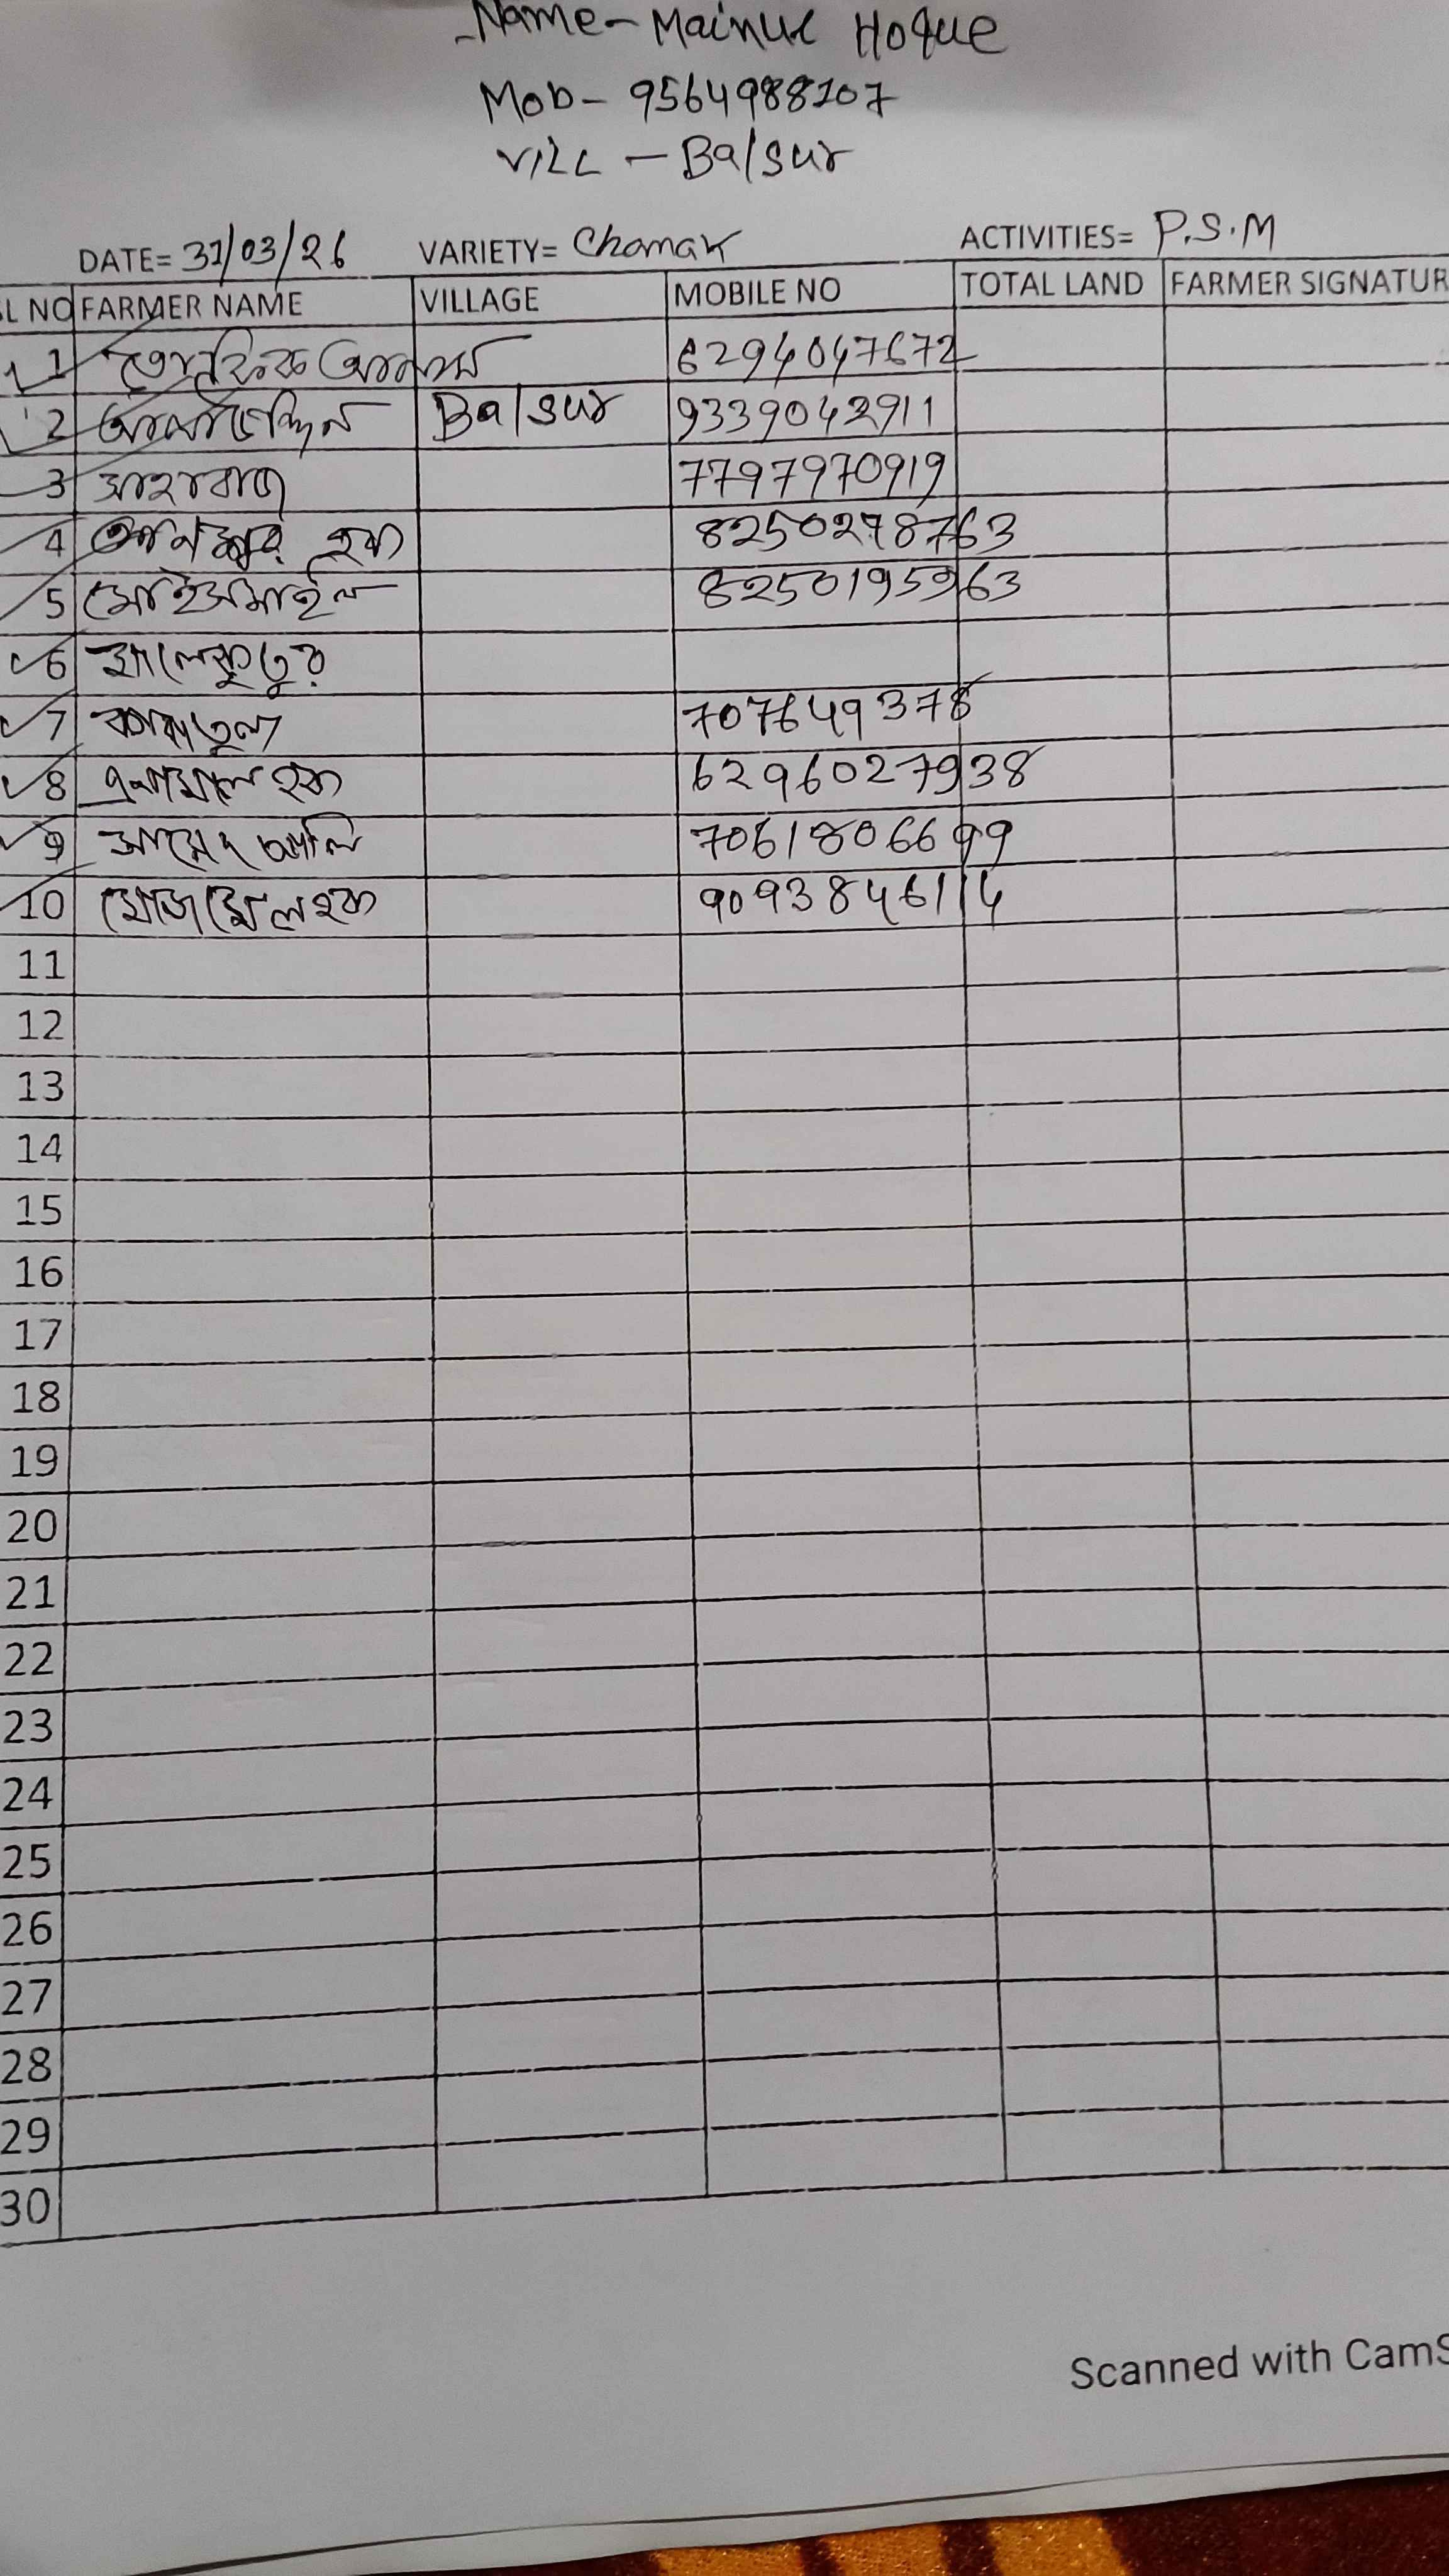 Name - Mainul Hoque
Mob - 9564988107
Vill - Balsur
DATE= 31/03/26 VARIETY= Chamak ACTIVITIES= P.S.M
SL NO FARMER NAME VILLAGE MOBILE NO TOTAL LAND FARMER SIGNATUR
1 6294047672
2 Balsur 9339042911
3 7797970919
4 হক 8250278763
5 8250195963
6
7
8 হক 6296027938
9 আলি 7061806699
10 মোজাম্মেল হক 9093846114
11
12
13
14
15
16
17
18
19
20
21
22
23
24
25
26
27
28
29
30
Scanned with CamS